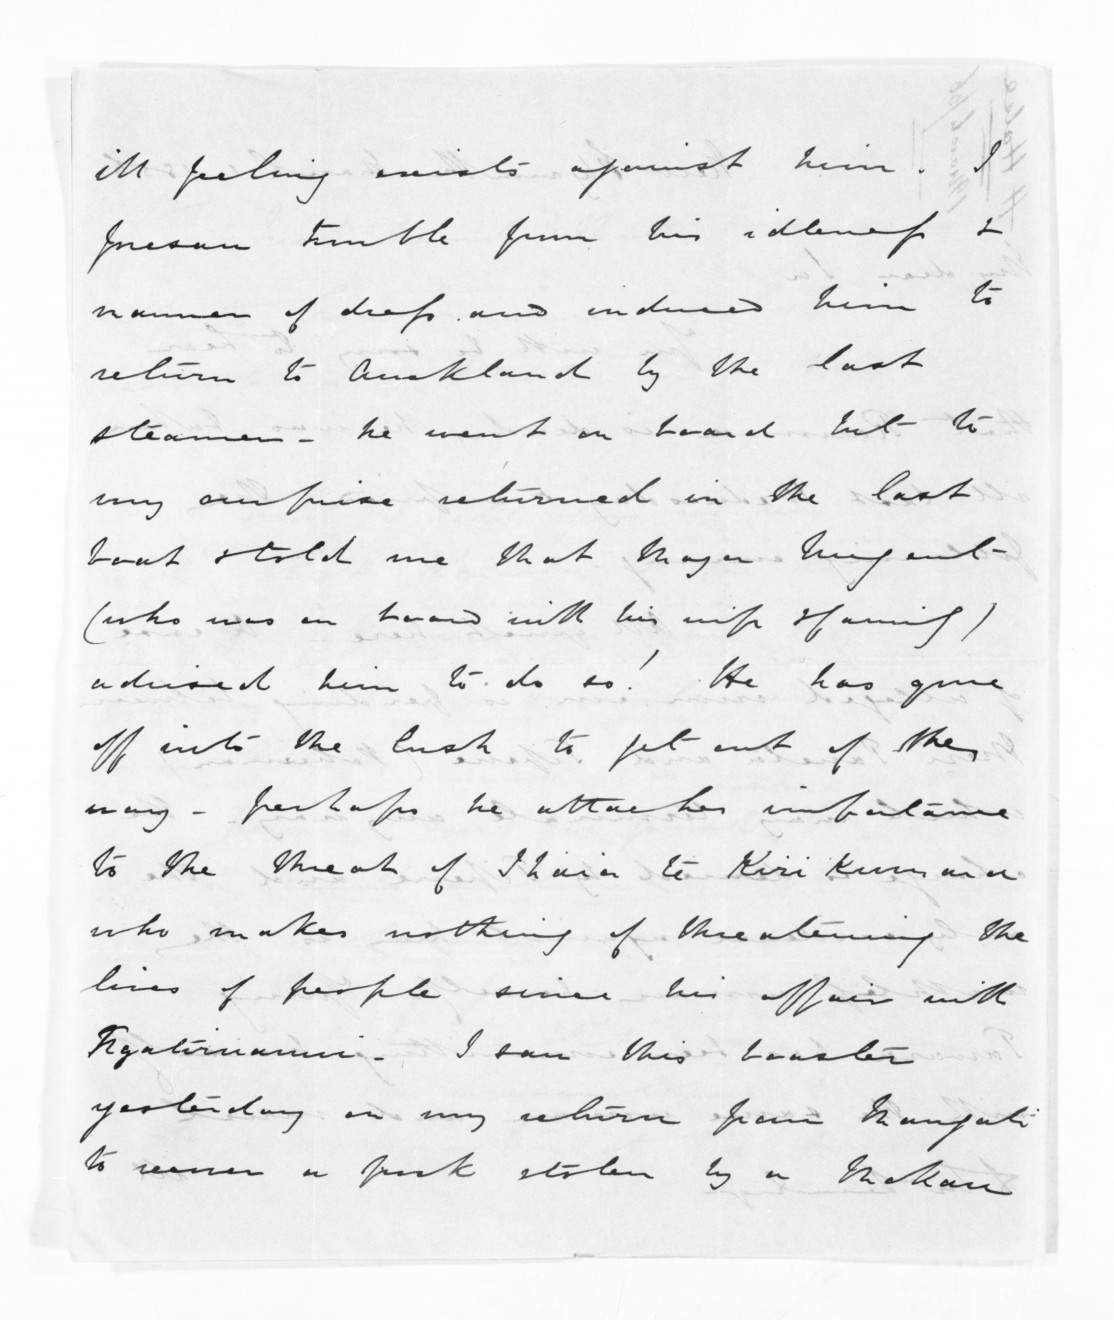 ill feeling exists against him. I
foresaw trouble from his idleness &
manner of dress and induced him to
return to Auckland by the last
steamer - he went on board but to
my surprise returned in the last
boat & told me that Major Nugent
(who was on board with his wife & family)
advised him to do so! He has gone
off into the bush to get out of the
way - perhaps he attaches importance
to the threat of Ihaia te Kiri Kumara
who makes nothing of threatening the
lives of people since his affair with
Ngatiruanui - I saw this boaster
yesterday on my return from Mangati
to recover a fork stolen by a